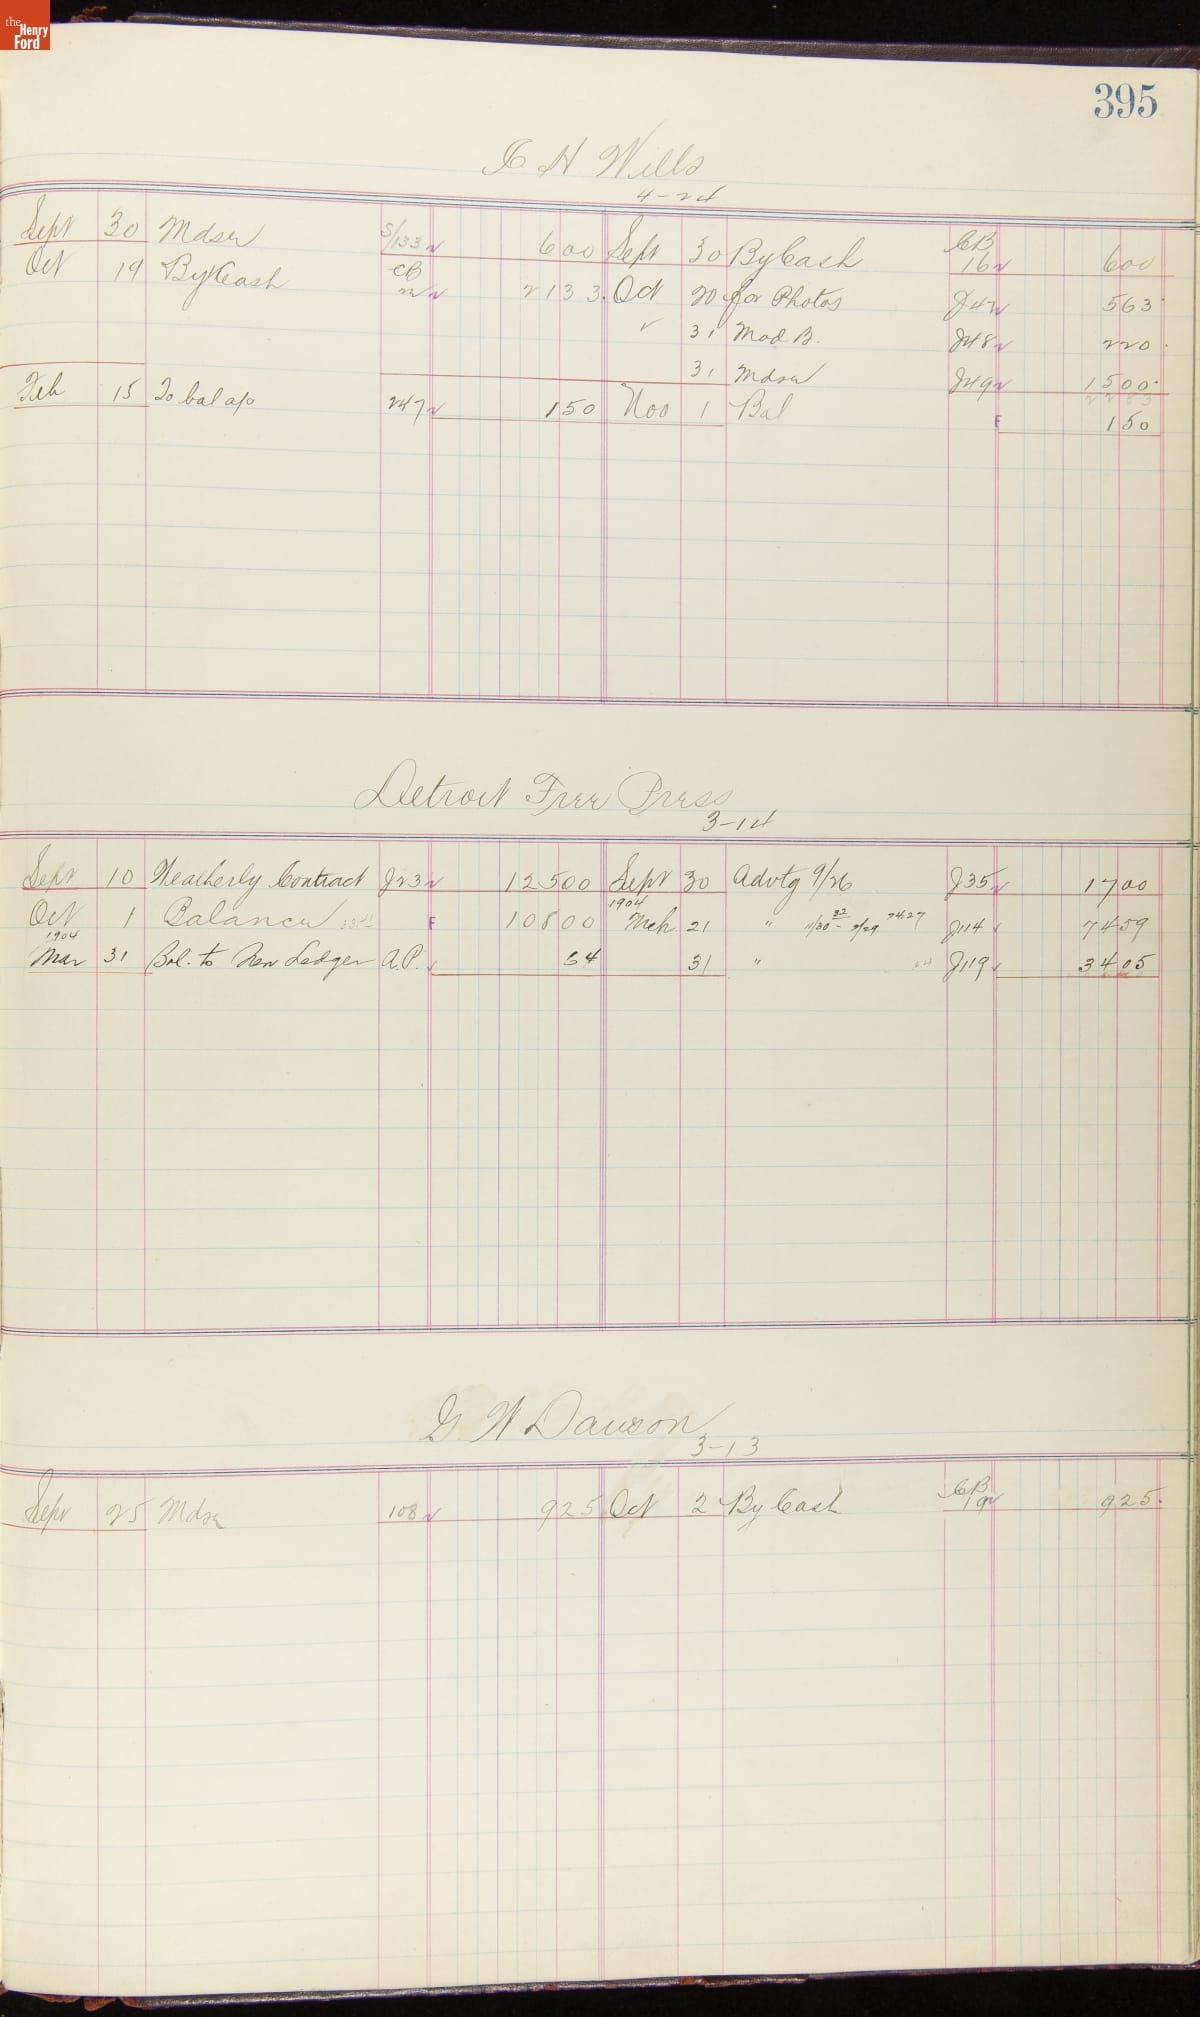 the Henry Ford
395
C H Wills
4-24
Sept 30 Mdse S/133 6 00 Sept 30 By Cash CB 16 6 00
Oct 19 By Cash CB 22 21 33 Oct 20 for Photos J47 5 63
31 Mod B. J48 2 20
31 Mdse J49 15 00
22 83
Feb 15 To bal a/c 247 1 50 Nov 1 Bal F 1 50
Detroit Free Press
3-14
Sept 10 Neatherly Contract J23 125 00 Sept 30 Advtg 9/26 J35 17 00
Oct 1 Balance F 108 00 1904 Mch 21 " 11/30 - 2/29 74.27 J114 74 59
1904 Mar 31 Bal. to New Ledger A.P. 64 31 " J119 34 05
G W Dawson
3-13
Sept 25 Mdse 108 9 25 Oct 2 By Cash CB 19 9 25